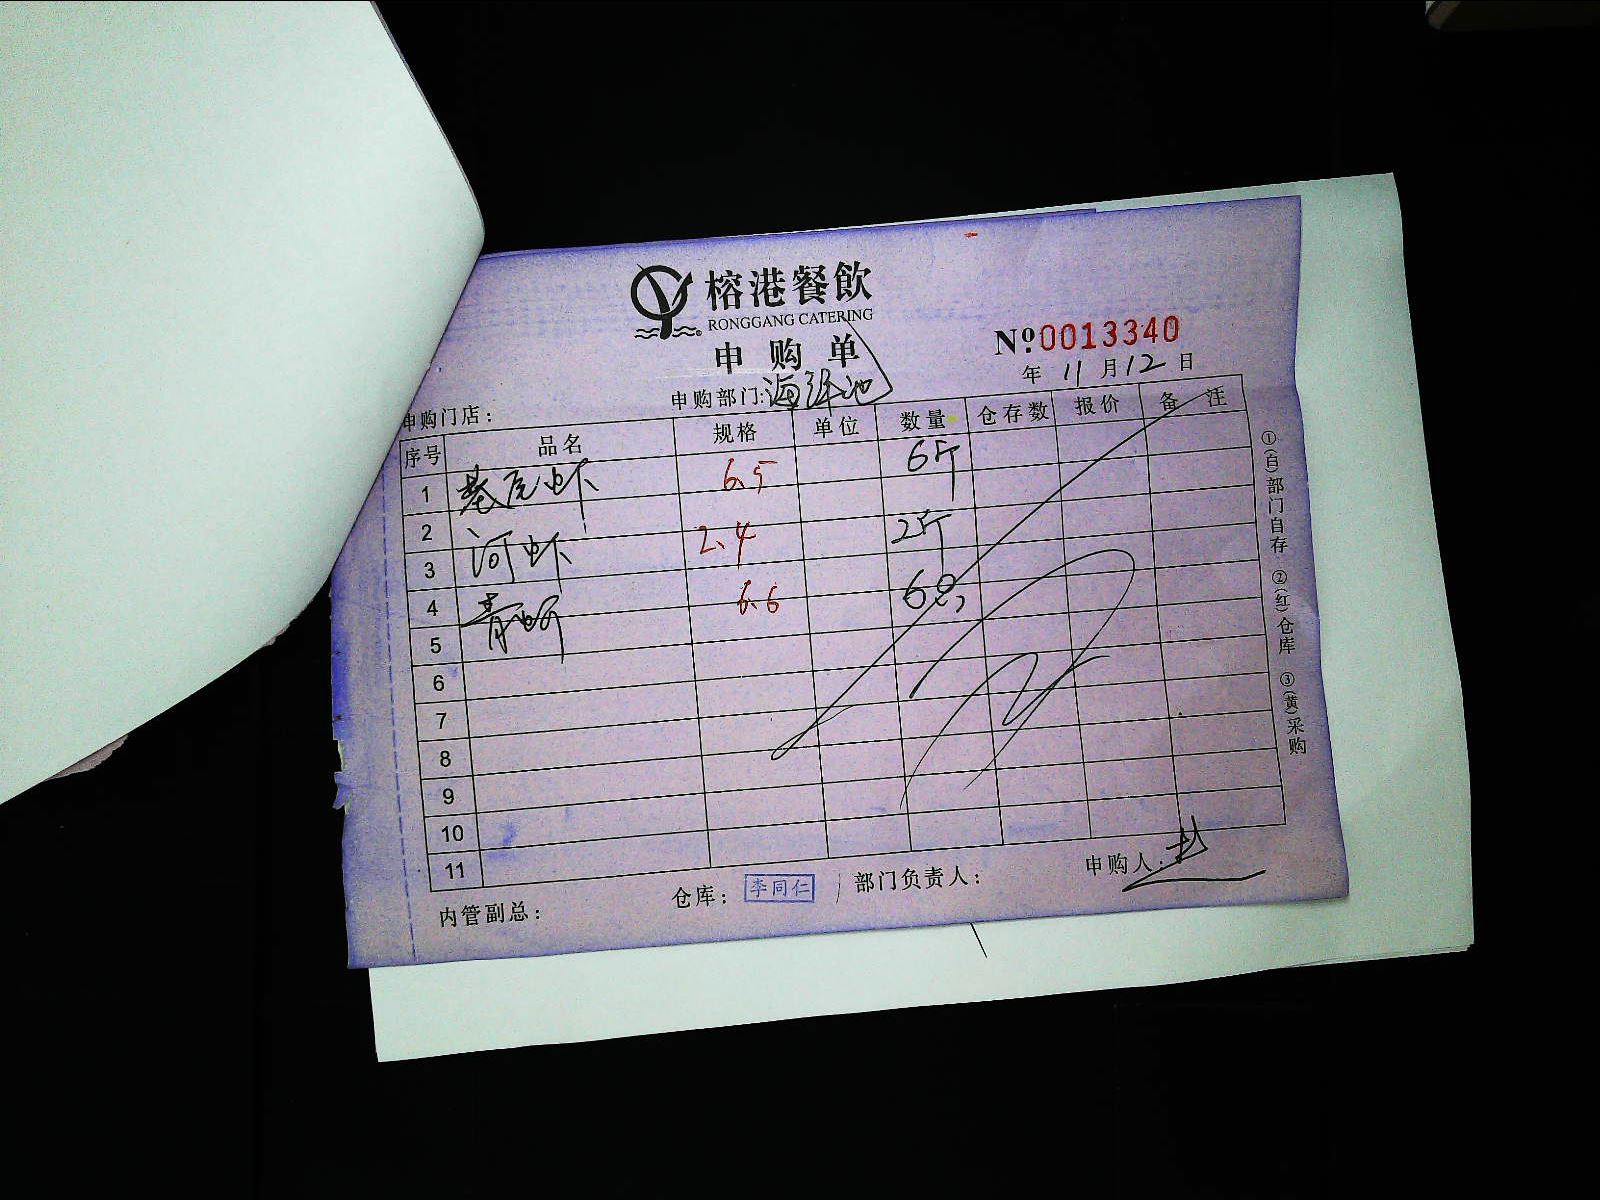 榕港餐飲
RONGGANG CATERING
申购单
№0013340
年 11 月 12 日
申购门店： 申购部门：海鲜池
序号 品名 规格 单位 数量 仓存数 报价 备注
1 基尾虾 6.5 6斤
2
3 河虾 2.4 2斤
4 6.6 6
5
6
7
8
9
10
11
内管副总： 仓库： 李同仁 部门负责人： 申购人：
①(白)部门自存 ②(红)仓库 ③(黄)采购